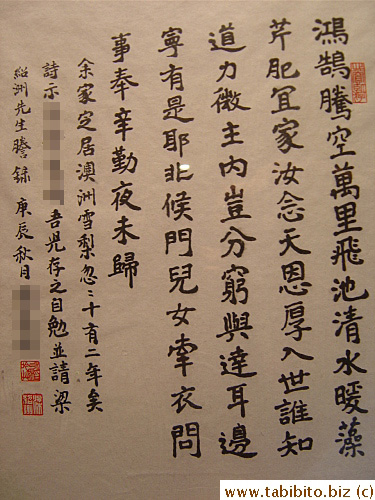 鴻鵠騰空萬里飛池清水暖藻
芹肥宜家汝念天恩厚入世誰知
道力微主內豈分窮與達耳邊
寧有是耶非候門兒女牽衣問
事奉辛勤夜未歸
余家定居澳洲雪梨忽忽十有二年矣
詩示 吾兒存之自勉並請梁
紹洲先生謄録 庚辰秋月
www.tabibito.biz (c)